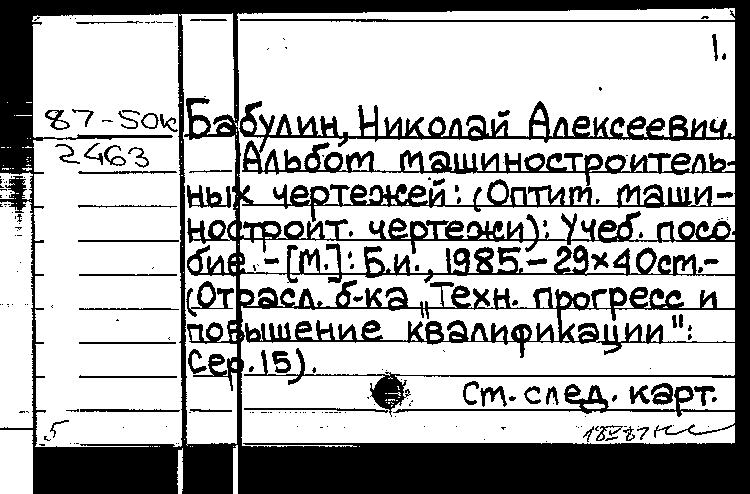 1.
87-SOK Бабулин, Николай Алексеевич.
2463 Альбом машиностроитель-
ных чертежей: (Оптим. маши-
ностроит. чертежи): Учеб. посо-
бие. - [М.]: Б.и., 1985. - 29×40см. -
(Отрасл. б-ка „Техн. прогресс и
повышение квалификации":
Сер. 15).
См. след. карт.
5